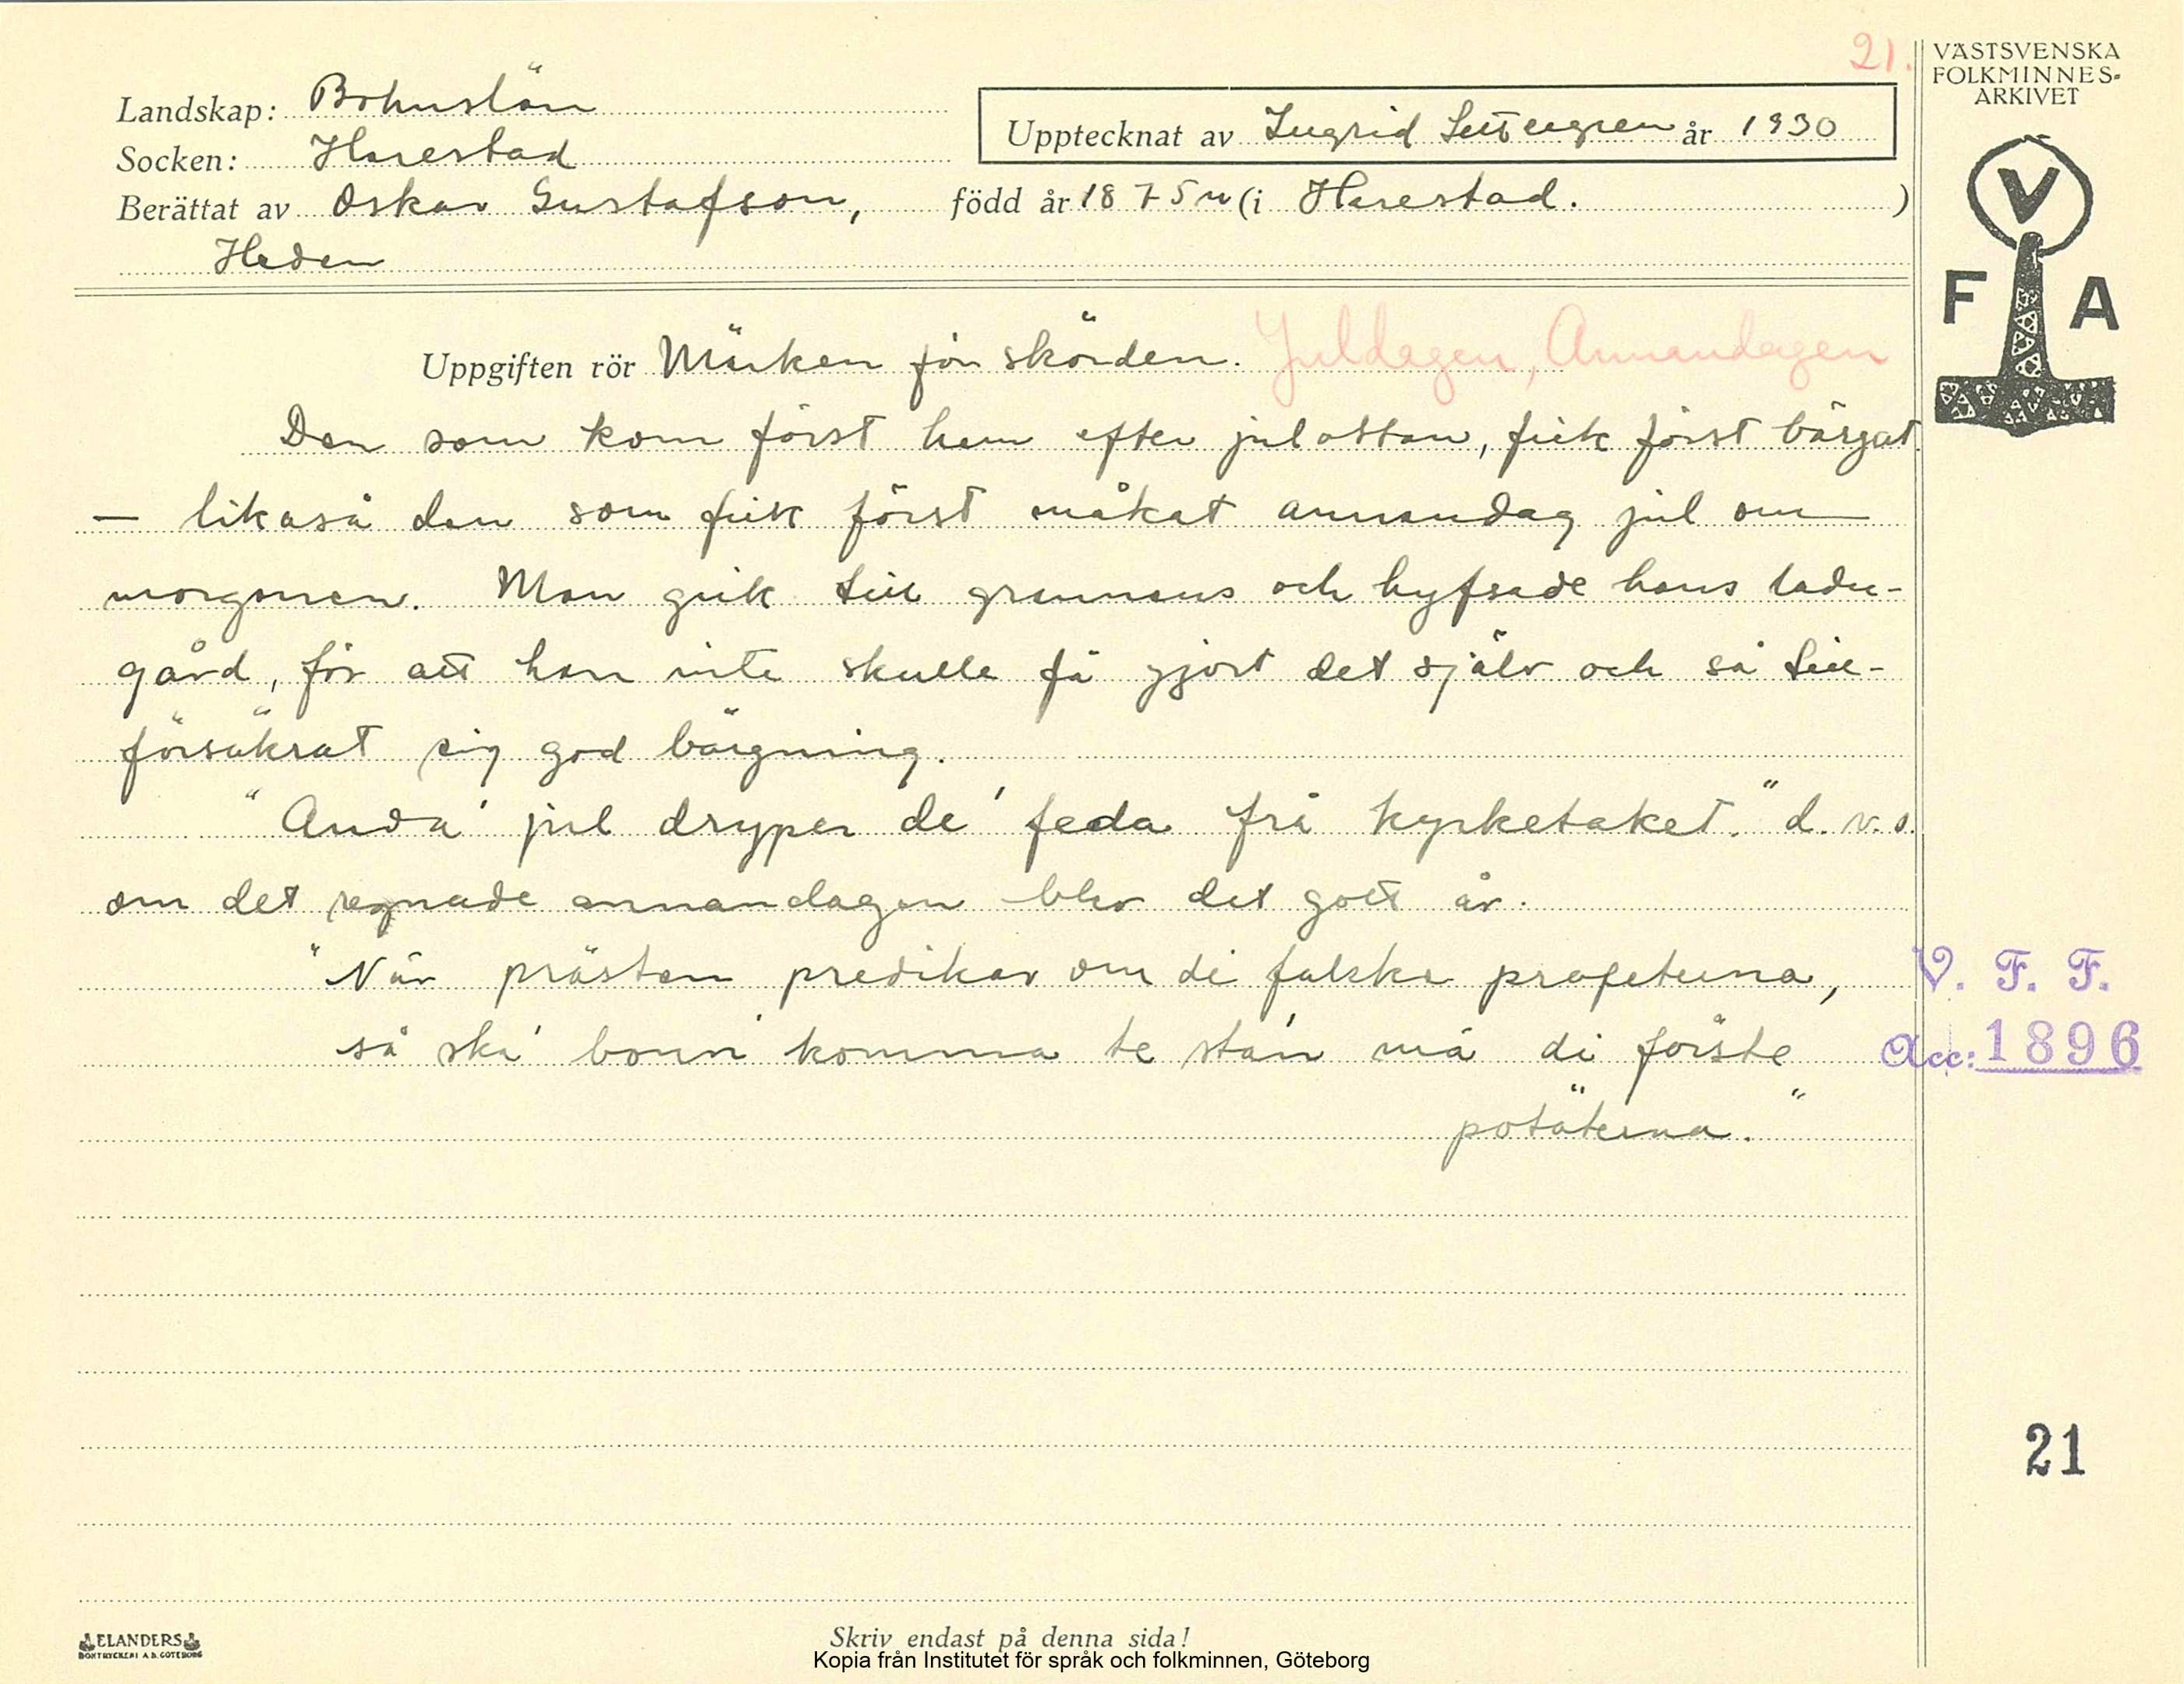 21.
VÄSTSVENSKA
FOLKMINNES-
ARKIVET
Landskap: Bohuslän
Upptecknat av Ingrid Settergren år 1930
Socken: Harestad
Berättat av Oskar Gustafson, född år 1875 (i Harestad. )
Heden
V
F A
Uppgiften rör Märken för skörden. Juldagen, Annandagen
Den som kom först hem efter julottan, fick först bärgat
— likaså den som fick först måkat annandag jul om
morgonen. Man gick till grannens och hyfsade hans ladu-
gård, för att han inte skulle få gjort det själv och så till-
försäkrat sig god bärgning.
"Anda' jul dryper de' feda frå kyrketaket." d.v.s.
om det regnade annandagen blev det gott år.
"När prästen predikar om di falska profeterna,
så ska' bonn' komma te stan' mä di förste
potäterna."
V. F. F.
Acc: 1896
21
ELANDERS
BOKTRYCKERI A.B. GÖTEBORG
Skriv endast på denna sida!
Kopia från Institutet för språk och folkminnen, Göteborg